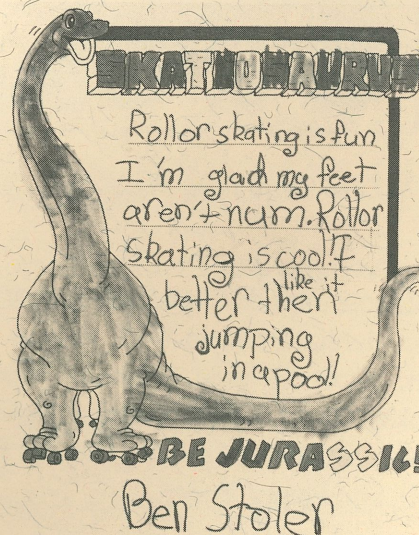 SKATINOSAURUS
Rollorskating is fun
I'm glad my feet
aren't num. Rollor
skating is cool! I
like it
better then
jumping
in a pool!
BE JURASSIC!
Ben Stoler